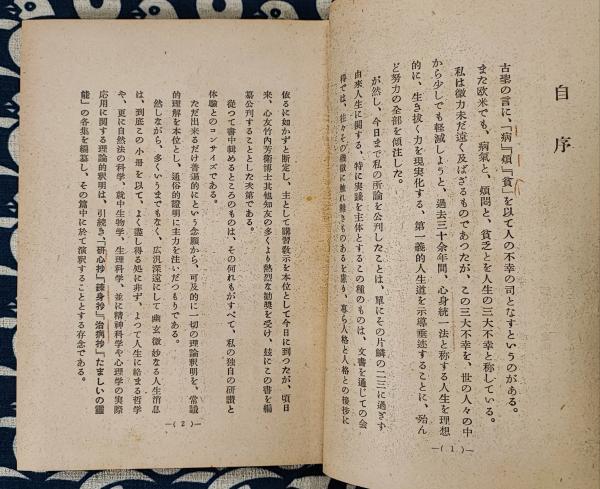 自序
古聖の言に、『病』『煩』『貧』を以て人の不幸の司となすというのがある。
また欧米でも、病氣と、煩悶と、貧乏とを人生の三大不幸と称している。
私は微力未だ遠く及ばざるものであつたが、この三大不幸を、世の人々の中
から少しでも軽減しようと、過去三十余年間、心身統一法と称する人生を理想
的に、生き抜く力を現実化する、第一義的人生道を示導垂迹することに、殆ん
ど努力の全部を傾注した。
が然し、今日まで私の所論を公刊したことは、單にその片鱗の二三に過ぎず
由來人生に関する、特に実践を主体とするこの種のものは、文書を通じての会
得では、往々その機微に触れ難きものあるを慮り、専ら人格と人格との接捗に
―( 1 )―
依るに如かずと断定し、主として講習敎示を本位として今日に到つたが、頃日
來、心友竹内芳衛博士其他知友の多くより熱烈な勧奬を受け、玆にこの書を編
纂公刊することとした次第である。
從つて書中輯めるところのものは、その何れもがすべて、私の独自の研讃と
体驗とのコンサイズである。
ただ出来るだけ普遍的にという念願から、可及的に一切の理論釈明を、常識
的理解を本位とし、通俗的證明に主力を注いだつもりである。
然しながら、多くいうまでもなく、広汎深遠にして幽玄微妙なる人生消息
は、到底この小冊を以て、よく盡し得る処に非ず、よつて人生に絡まる哲学
や、更に自然法の科学、就中生物学、生理科学、並に精神科学や心理学の実際
応用に関する理論的釈明は、引続き『研心抄』『錬身抄』『治病抄』『たましいの靈
能』の各集を編纂し、その篇中に於て演釈することとする存念である。
―( 2 )―